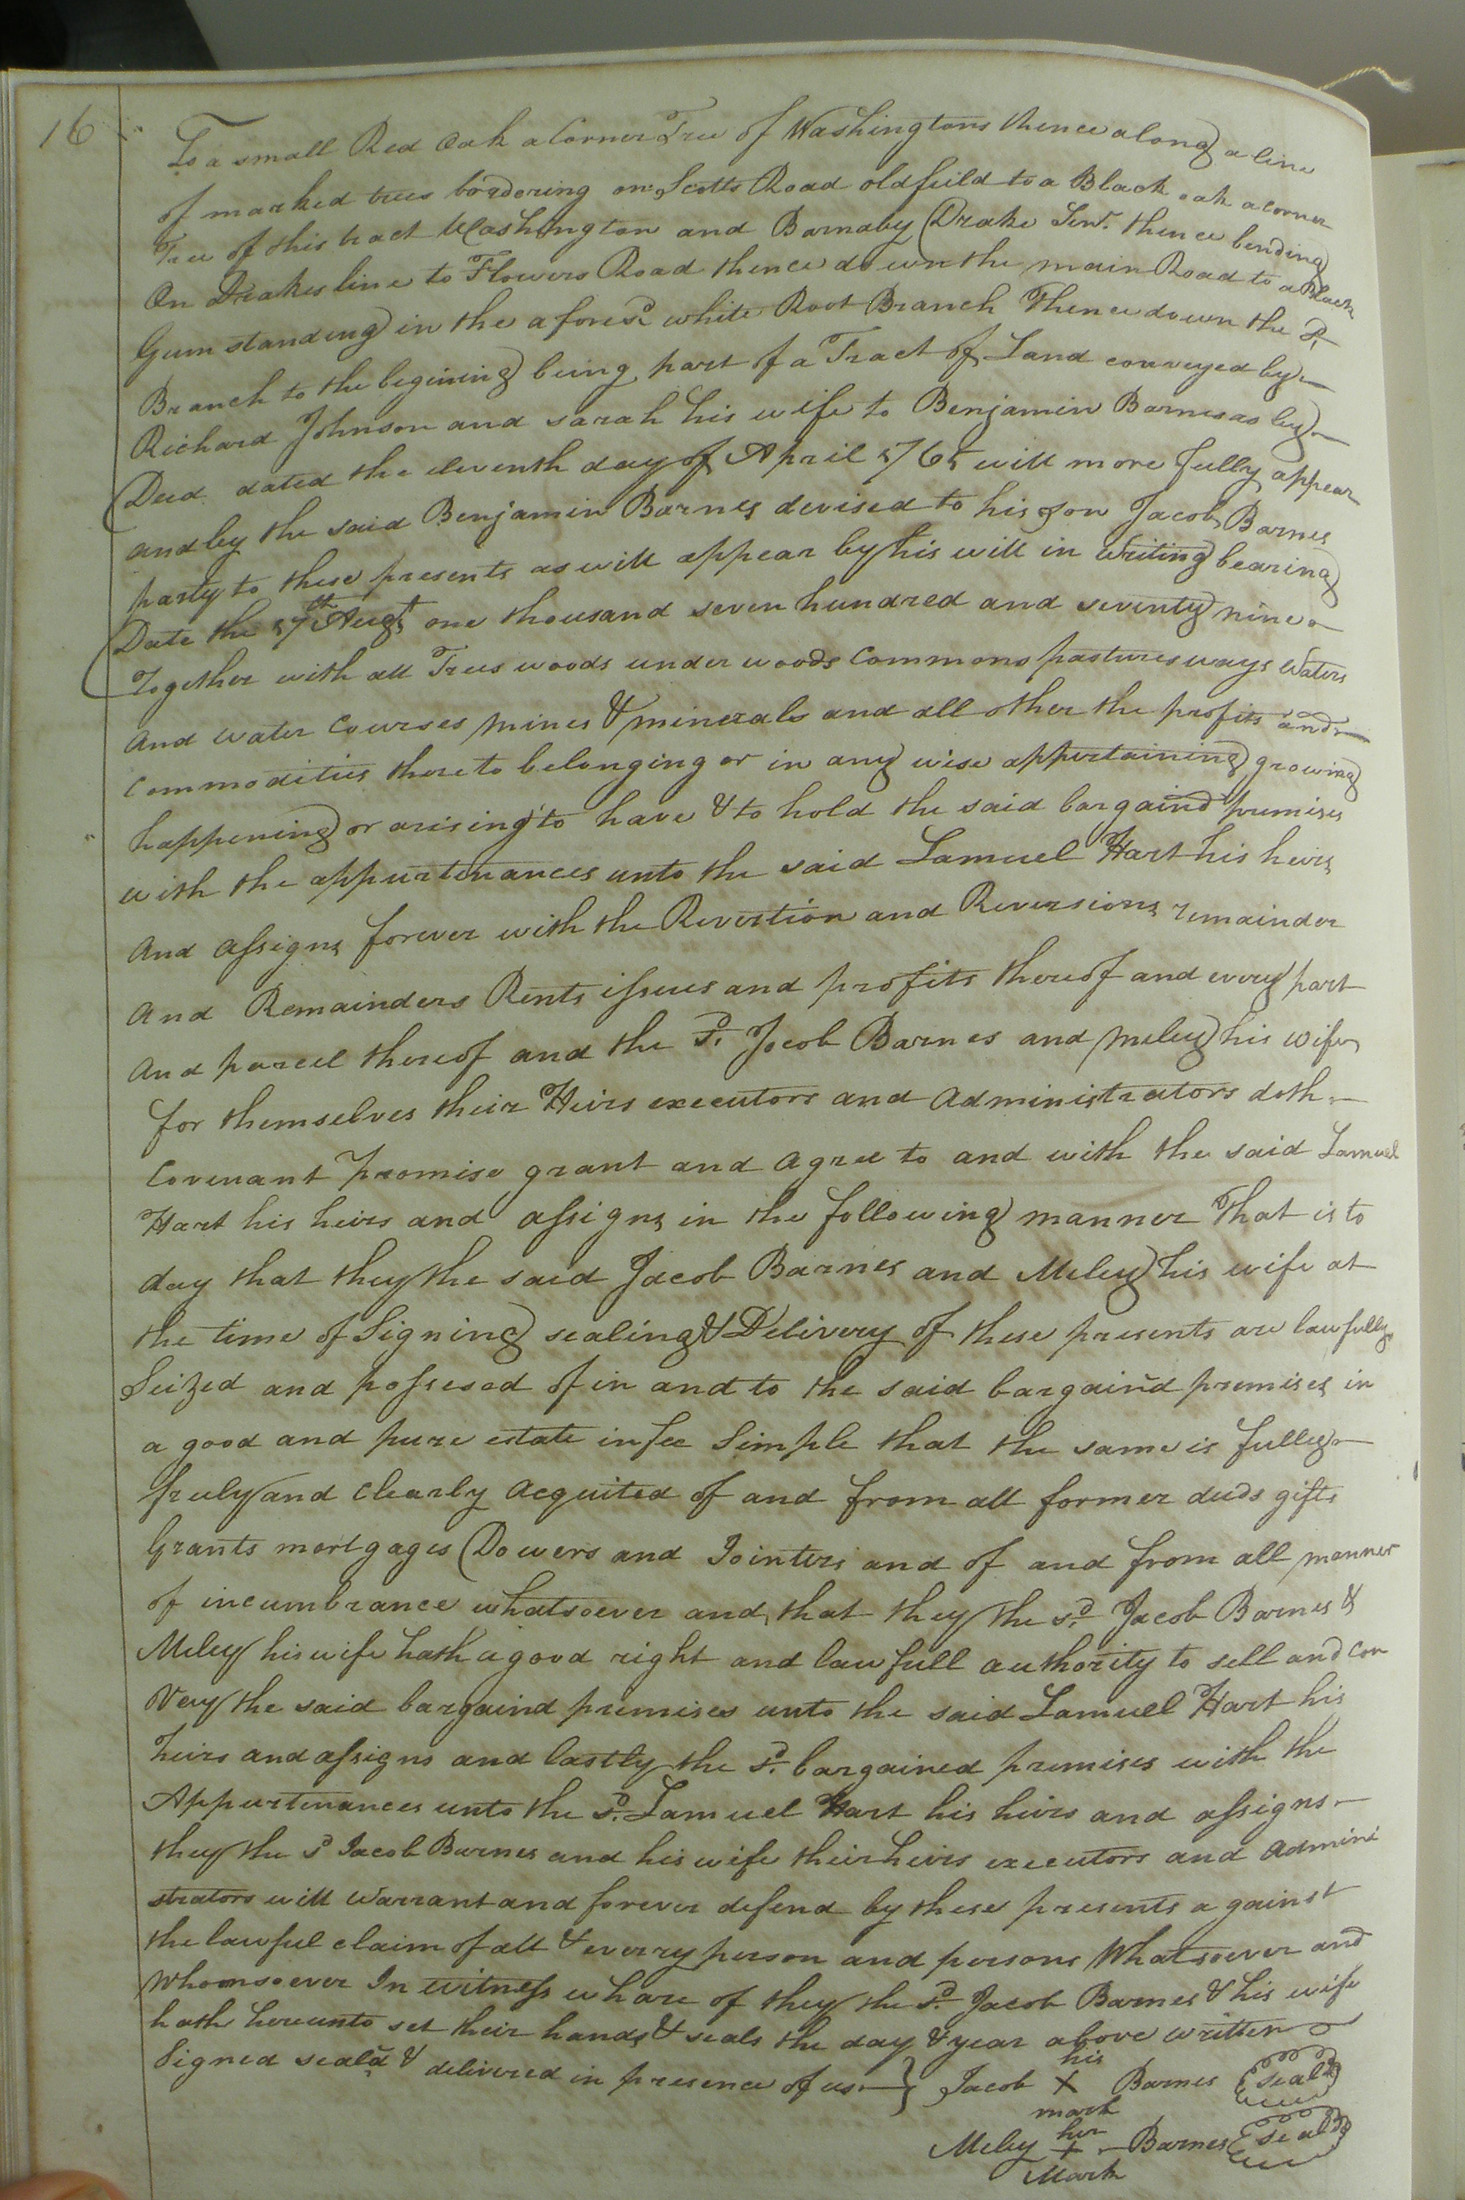 16
To a small Red Oak a Corner Tree of Washingtons thence along a line
of marked trees bordering on Scotts Road old feild to a Black oak a corner
Tree of this tract Washington and Barnaby Drake Senr. thence bending
On Drakes line to Flowers Road thence down the main Road to a Black
Gum standing in the afores.d white Root Branch Thence down the s.d
Branch to the begining being part of a Tract of Land conveyed by
Richard Johnson and sarah his wife to Benjamin Barnes as by
Deed dated the eleventh day of April 1765 will more fully appear
and by the said Benjamin Barnes devised to his son Jacob Barnes
party to these presents as will appear by his will in writing bearing
Date the 17th Augt one thousand seven hundred and seventy nine
Together with all Trees woods under woods Commons pastures ways Waters
And water Courses mines & minerals and all other the profits and
Commodities thereto belonging or in any wise appertaining growing
happening or arising to have & to hold the said bargaind premises
with the appurtenances unto the said Lamuel Hart his heirs
And assigns forever with the Revertion and Reversions remainder
And Remainders Rents issues and profits thereof and every part
And parcel thereof and the s.d Jacob Barnes and Miley his wife
for themselves their Heirs executors and Administrators doth
Covenant promise grant and agree to and with the said Lamuel
Hart his heirs and assigns in the following manner That is to
day that they the said Jacob Barnes and Miley his wife at
the time of Signing sealing & Delivery of these presents are lawfully
Seized and possesed of in and to the said bargain'd premises in
a good and pure estate in fee Simple that the same is fully
freely and clearly Acquited of and from all former deeds gifts
Grants mortgages Dowers and Jointers and of and from all manner
of incumbrance whatsoever and that they the s.d Jacob Barnes &
Miley his wife hath a good right and lawfull authority to sell and Con
Vey the said bargaind premises unto the said Lamuel Hart his
heirs and assigns and lastly the s.d bargained premises with the
Appurtenances unto the s.d Lamuel Hart his heirs and assigns
they the s.d Jacob Barnes and his wife their heirs executors and Admini
strators will Warrant and forever defend by these presents a gainst
the lawful claim of all & everry person and persons Whatsoever and
Whomsoever In witness whare of they the s.d Jacob Barnes & his wife
hath hereunto set their hands & seals the day & year above written
Signed seald & delivered in presence of us } Jacob his X mark Barnes seal
Miley her + Mark Barnes seal